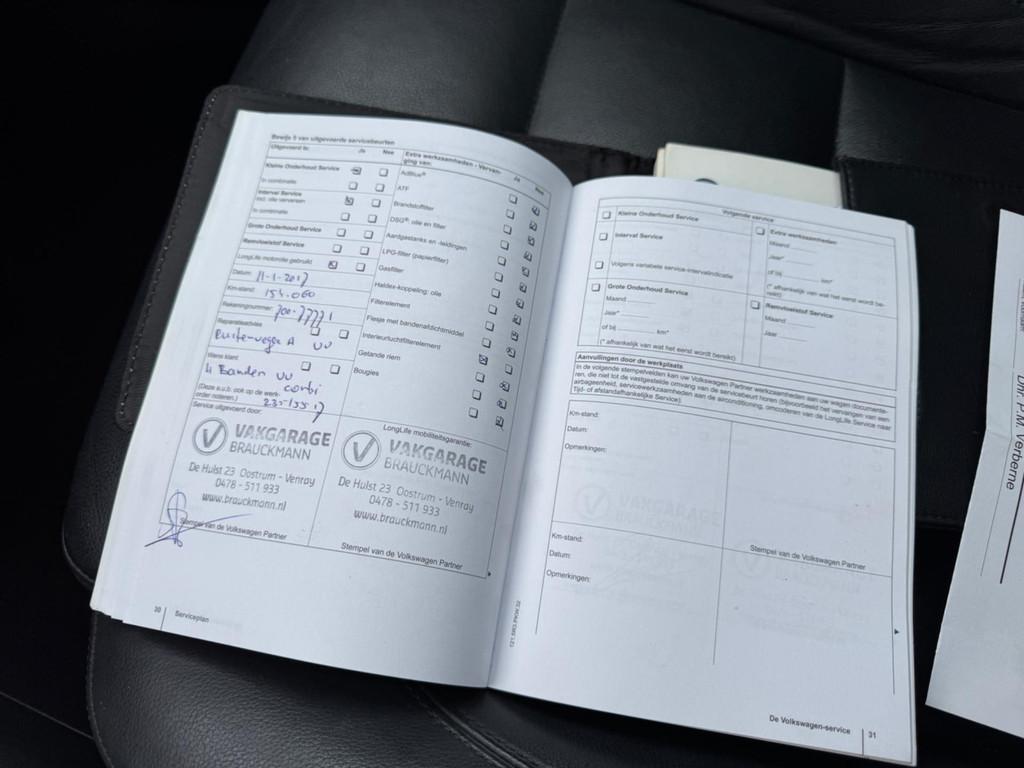 Bewijs 5 van uitgevoerde servicebeurten
Uitgevoerd is: Ja Nee
Kleine Onderhoud Service
In combinatie
Interval Service
incl. olie verversen
In combinatie
Grote Onderhoud Service
Remvloeistof Service
LongLife motorolie gebruikt
Datum: 11-1-2017
Km-stand: 154.060
Rekeningnummer: 700-77771
Reparatieadvies
Ruitenwegen A VV
Wens klant
4 Banden VV
combi
(Deze a.u.b. ook op de werk-
order noteren.) 235-155 17
Service uitgevoerd door:
VAKGARAGE
BRAUCKMANN
De Hulst 23 Oostrum - Venray
0478 - 511 933
www.brauckmann.nl
Stempel van de Volkswagen Partner
Extra werkzaamheden - Vervan-
ging van: Ja Nee
AdBlue®
ATF
Brandstoffilter
DSG®: olie en filter
Aardgastanks en -leidingen
LPG-filter (papierfilter)
Gasfilter
Haldex-koppeling: olie
Filterelement
Flesje met bandenafdichtmiddel
Interieurluchtfilterelement
Getande riem
Bougies
LongLife mobiliteitsgarantie:
VAKGARAGE
BRAUCKMANN
De Hulst 23 Oostrum - Venray
0478 - 511 933
www.brauckmann.nl
Stempel van de Volkswagen Partner
30 Serviceplan
Volgende service
Kleine Onderhoud Service
Interval Service
Volgens variabele service-intervalindicatie
Grote Onderhoud Service
Maand
Jaar*
of bij km*
(* afhankelijk van wat het eerst wordt bereikt)
Extra werkzaamheden
Maand
Jaar*
of bij km*
(* afhankelijk van wat het eerst wordt be-
reikt)
Remvloeistof Service
Maand
Jaar
Aanvullingen door de werkplaats
In de volgende stempelvelden kan uw Volkswagen Partner werkzaamheden aan uw wagen documente-
ren, die niet tot de vastgestelde omvang van de servicebeurt horen (bijvoorbeeld het vervangen van een
airbageenheid, servicewerkzaamheden aan de airconditioning, omcoderen van de LongLife Service naar
Tijd- of afstandafhankelijke Service).
Km-stand:
Datum:
Opmerkingen:
Stempel van de Volkswagen Partner
Km-stand:
Datum:
Opmerkingen:
De Volkswagen-service 31
Dhr. P.M. Verberne